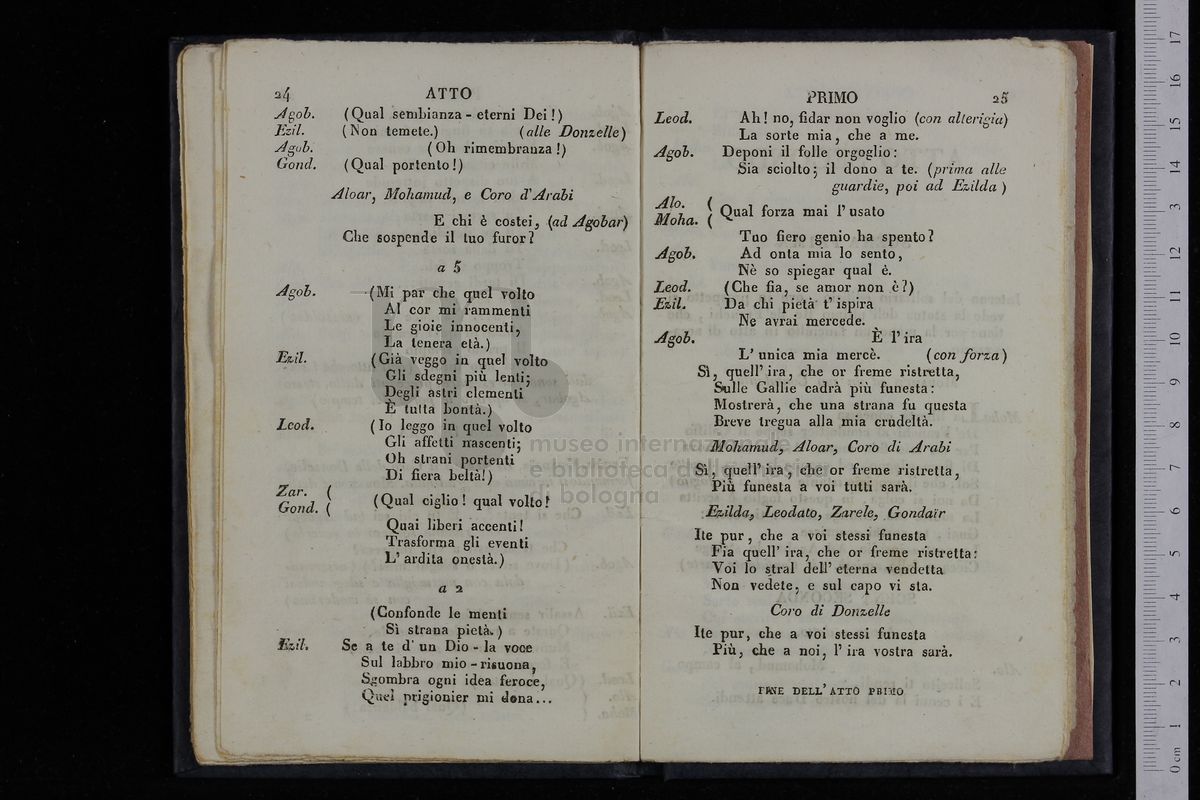 24 ATTO
Agob. (Qual sembianza - eterni Dei!)
Ezil. (Non temete.) (alle Donzelle)
Agob. (Oh rimembranza!)
Gond. (Qual portento!)
Aloar, Mohamud, e Coro d'Arabi
E chi è costei, (ad Agobar)
Che sospende il tuo furor?
a 5
Agob. (Mi par che quel volto
Al cor mi rammenti
Le gioie innocenti,
La tenera età.)
Ezil. (Già veggo in quel volto
Gli sdegni più lenti;
Degli astri clementi
È tutta bontà.)
Leod. (Io leggo in quel volto
Gli affetti nascenti;
Oh strani portenti
Di fiera beltà!)
Zar. (
Gond. ( (Qual ciglio! qual volto!
Quai liberi accenti!
Trasforma gli eventi
L'ardita onestà.)
a 2
(Confonde le menti
Sì strana pietà.)
Ezil. Se a te d'un Dio - la voce
Sul labbro mio - risuona,
Sgombra ogni idea feroce,
Quel prigionier mi dona...
PRIMO 25
Leod. Ah! no, fidar non voglio (con alterigia)
La sorte mia, che a me.
Agob. Deponi il folle orgoglio:
Sia sciolto; il dono a te. (prima alle
guardie, poi ad Ezilda)
Alo. (
Moha. ( Qual forza mai l'usato
Tuo fiero genio ha spento?
Agob. Ad onta mia lo sento,
Nè so spiegar qual è.
Leod. (Che fia, se amor non è?)
Ezil. Da chi pietà t'ispira
Ne avrai mercede.
Agob. È l'ira
L'unica mia mercè. (con forza)
Sì, quell'ira, che or freme ristretta,
Sulle Gallie cadrà più funesta:
Mostrerà, che una strana fu questa
Breve tregua alla mia crudeltà.
Mohamud, Aloar, Coro di Arabi
Sì, quell'ira, che or freme ristretta,
Più funesta a voi tutti sarà.
Ezilda, Leodato, Zarele, Gondaïr
Ite pur, che a voi stessi funesta
Fia quell'ira, che or freme ristretta:
Voi lo stral dell'eterna vendetta
Non vedete, e sul capo vi sta.
Coro di Donzelle
Ite pur, che a voi stessi funesta
Più, che a noi, l'ira vostra sarà.
FINE DELL'ATTO PRIMO
museo internazionale
e biblioteca della
di bologna
0 cm 1 2 3 4 5 6 7 8 9 10 11 12 13 14 15 16 17